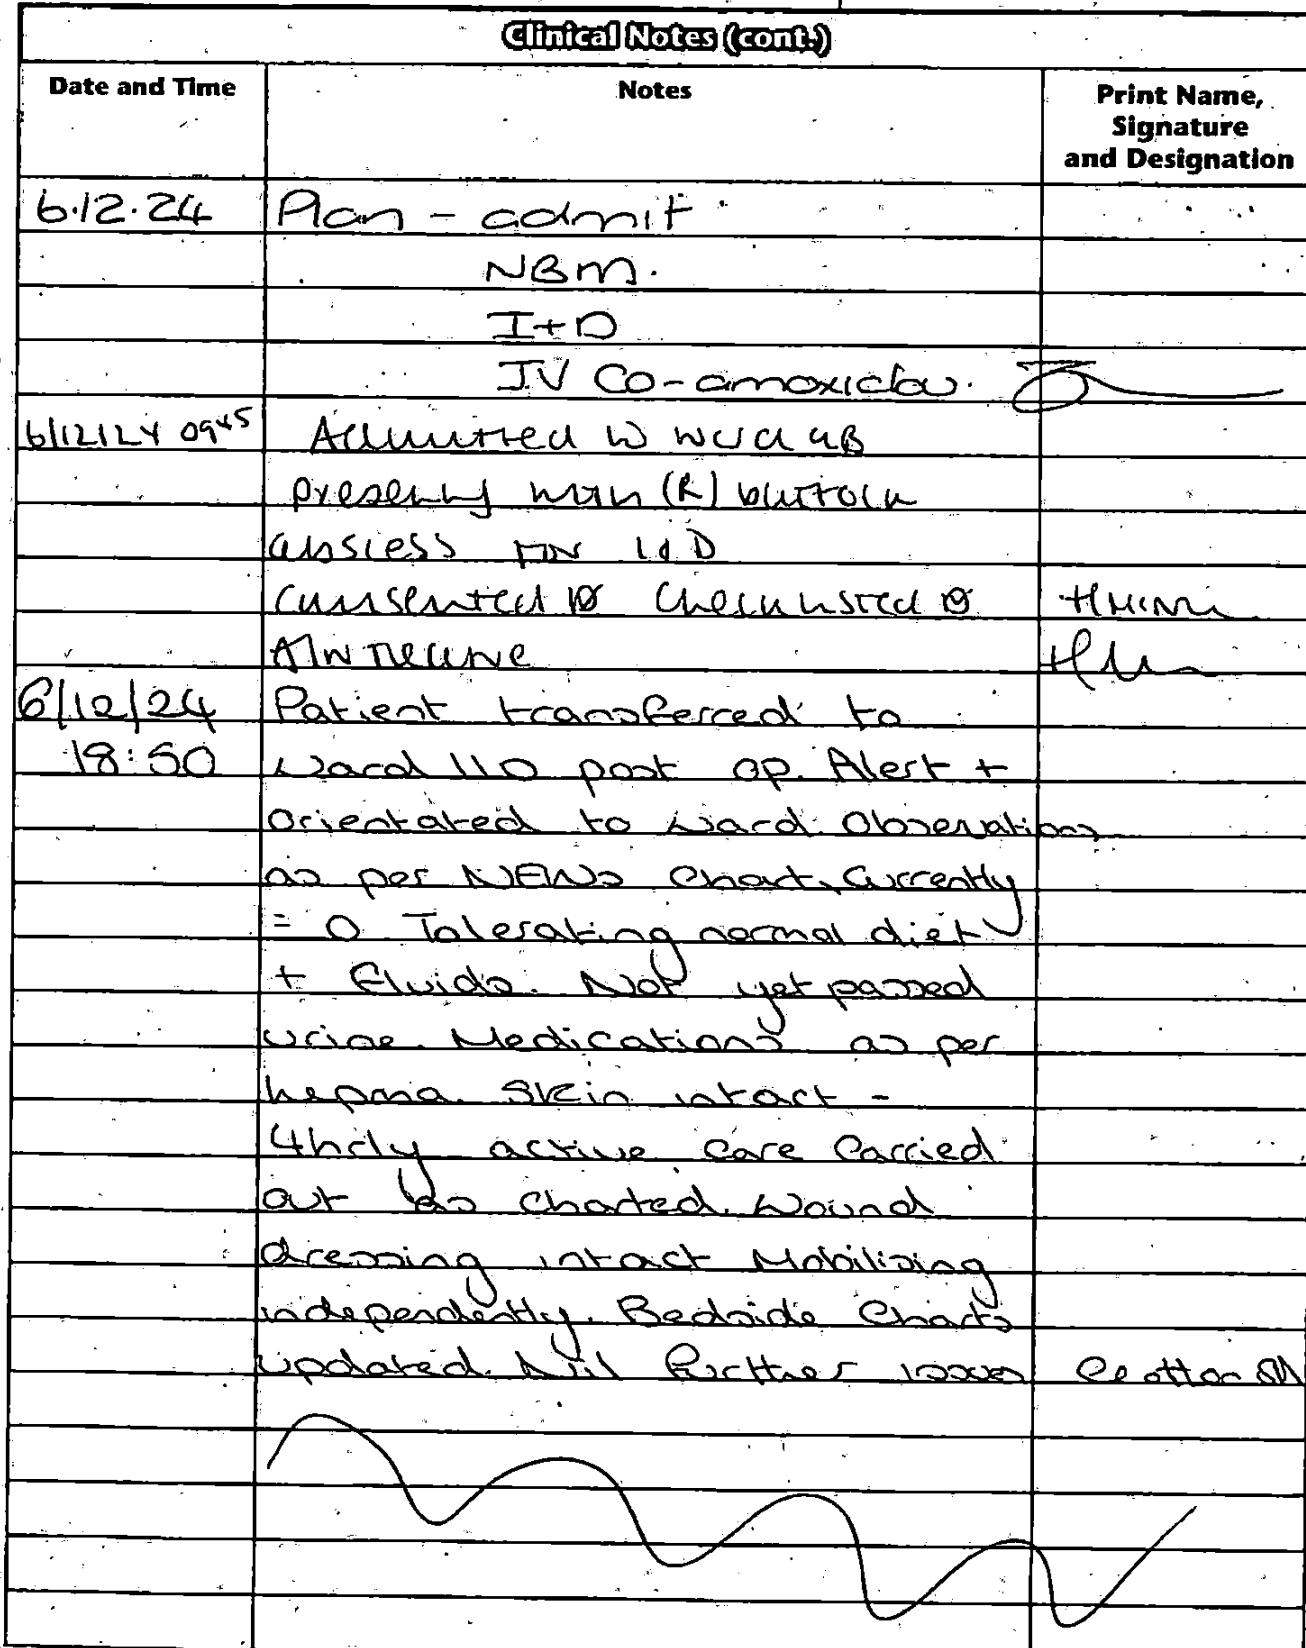 Clinical Notes (cont.)
Date and Time Notes Print Name,
Signature
and Designation
6.12.24 Plan - admit
NBM.
I+D
IV Co-amoxiclav.
6/12/24 0945 Admitted to ward 4B
presenting with (R) buttock
abscess for I+D
Consented Checklisted
Await theatre
6/12/24 Patient transferred to
18:50 Ward 110 post op. Alert +
Orientated to ward. Observations
as per NEWS chart, Currently
= 0 Tolerating normal diet
+ Fluids. Not yet passed
urine. Medications as per
hepma. Skin intact -
4hrly active care Carried
out as charted. Wound
dressing intact Mobilising
independently. Bedside Charts
updated. Nil further issues